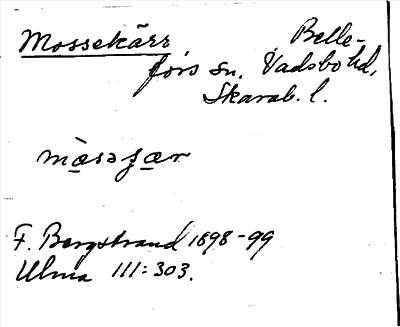 Mossekärr Belle-
fors sn, Vadsbo hd,
Skarab. l.
mosəʃær
F. Bergstrand 1898-99
Ulma 111:303.